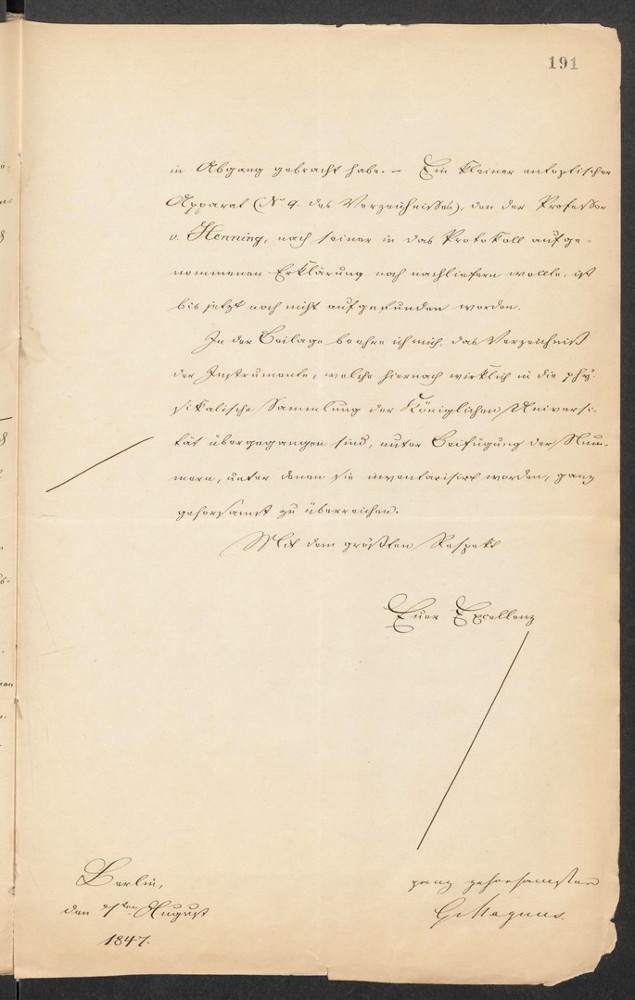 191
in Abgang gebracht habe. – Ein kleiner entoptischer
Apparat (No 9. des Verzeichnisses), den der Professor
v. Henning, nach seiner in das Protokoll aufge-
nommenen Erklärung noch nachliefern wollte, ist
bis jetzt noch nicht aufgefunden worden.
In der Beilage beehre ich mich, das Verzeichniß
der Instrumente, welche hiernach wirklich in die phy-
sikalische Sammlung der Königlichen Universi-
tät übergegangen sind, unter Beifügung der Num-
mern, unter denen sie inventarisirt worden, ganz
gehorsamst zu überreichen.
Mit dem größten Respekt
Euer Excellenz
ganz gehorsamster
G. Magnus.
Berlin,
den August
1847.